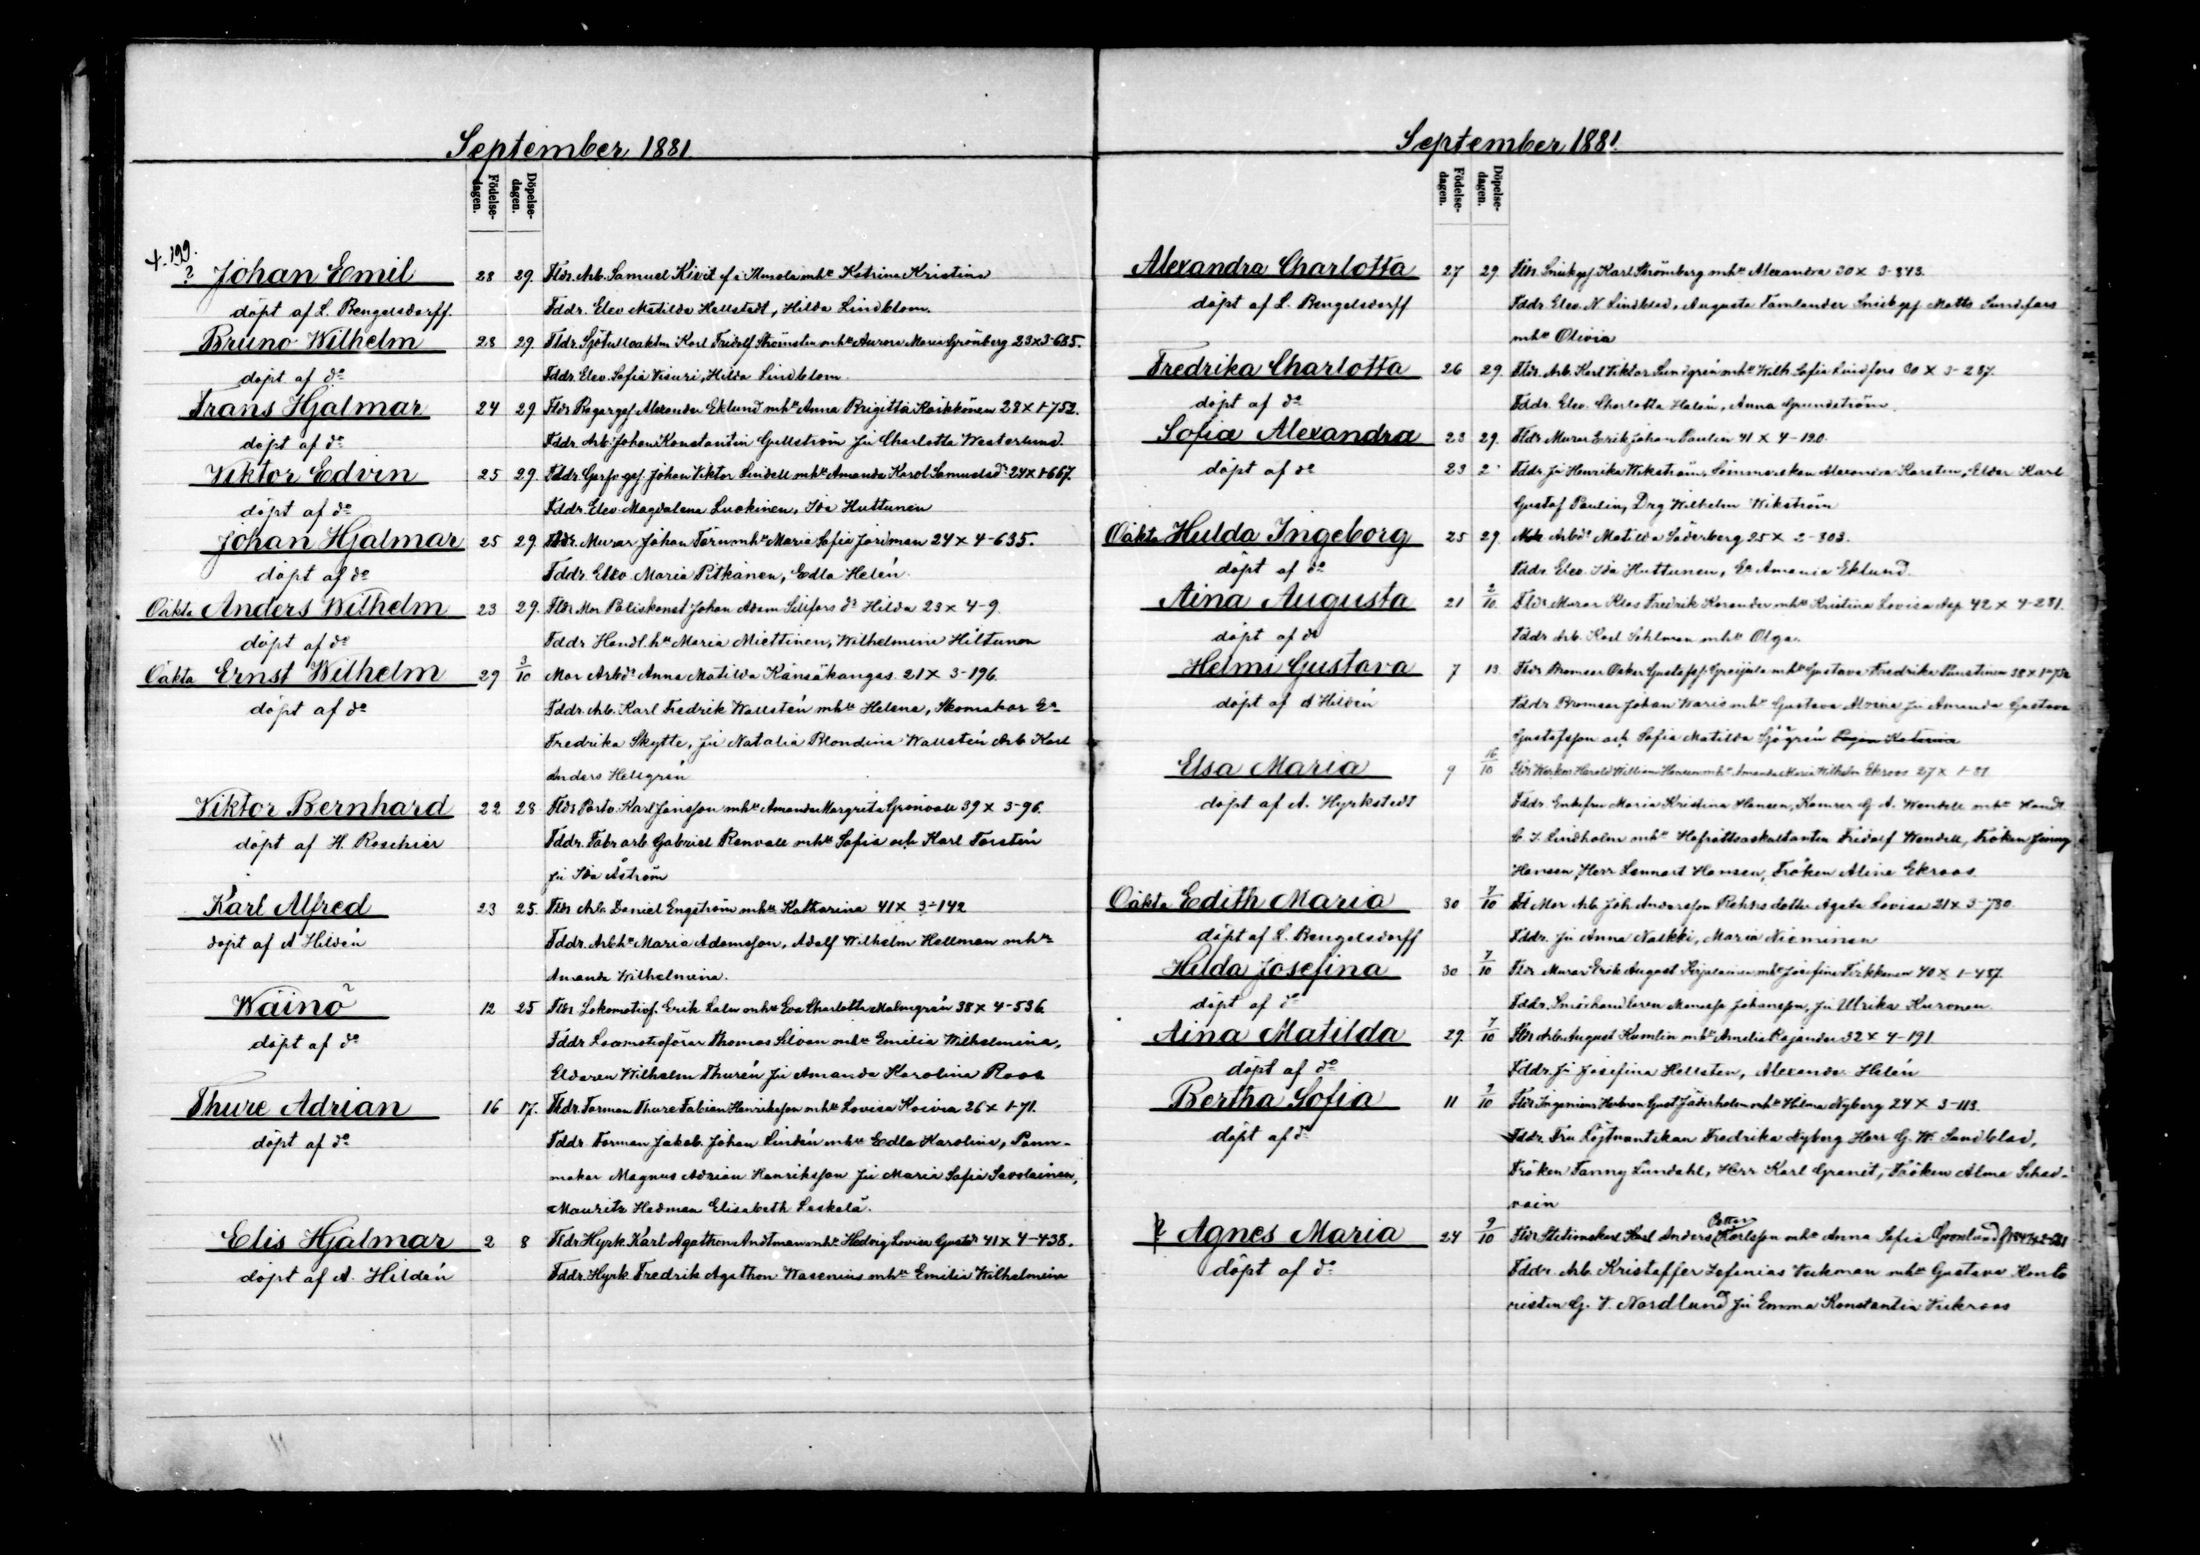 September 1881.
Födelse-dagen. Döpelse-dagen.
+ 199.
? Johan Emil 28 29. Fldr. Arb. Samuel Kivit mhu Katrina Kristina
döpt af L. Bengelsdorff. Fddr. Elev Matilda Hellstedt, Hilda Lindblom.
Bruno Wilhelm 28 29. Fldr. Karl Fridolf Strömsten mhu Aurora Maria Grönberg 23 x 3-685.
döpt af do Fddr. Elev. Sofia Visuri, Hilda Lindblom.
Frans Hjalmar 24 29 Fldr. Alexander Eklund mhu Anna Brigitta Kaikkonen 28 x 1-752.
döpt af do Fddr. Arb. Johan Konstantin Gullström Ju Charlotta Westerlund.
Viktor Edvin 25 29. Fldr. Johan Viktor Lindell mhu Amanda Karol. Samuelsdr 24 x 1-667.
döpt af do Fddr. Elev. Magdalena Luokinen, Ida Huttunen
Johan Hjalmar 25 29 Fldr. Murar Johan Törn mhu Maria Sofia Jordman 24 x 4-635.
döpt af do Fddr. Elev. Maria Pitkänen, Edla Helén.
Oäkta Anders Wilhelm 23 29. Mor Poliskonst Johan Adam Sillfors dr Hilda 23 x 4-9.
döpt af do Fddr Handl. hu Maria Miettinen, Wilhelmina Hiltunen
Oäkta Ernst Wilhelm 29 3/10 Mor Arbdr Anna Matilda Känsäkangas 21 x 3-196.
döpt af do Fddr. Arb. Karl Fredrik Wallstén mhu Helena, Skomakar Ea
Fredrika Skytte, Ju Natalia Blondina Wallstén Arb Karl
Anders Hellgrén
Viktor Bernhard 22 28 Fldr Karl Jansson mhu Amanda Margreta Grönvall 39 x 3-96.
döpt af H. Roschier Fddr. Fabr. arb Gabriel Renvall mhu Sofia och Karl Torstén
Ju Ida Åström
Karl Alfred 23 25. Fldr Arb. Daniel Engström mhu Katharina 41 x 3-142
döpt af A Hildén Fddr. Arbhu Maria Adamsson, Adolf Wilhelm Hellman mhu
Amanda Wilhelmina.
Wäinö 12 25 Fldr Lokomotivf. Erik Salm mhu Eva Charlotta Malmgrén 38 x 4-536
döpt af do Fddr Locomotivförar Thomas Silvan mhu Emilia Wilhelmina,
Eldaren Wilhelm Thurén Ju Amanda Karolina Roos
Thure Adrian 16 17. Fldr. Forman Thure Fabian Henriksson mhu Lovisa Koivia 26 x 1-71.
döpt af do Fddr. Forman Jakob Johan Lindén mhu Edla Karolina, Pann-
makar Magnus Adrian Henriksson Ju Maria Sofia Savolainen,
Mauritz Hedman Elisabeth Laskela.
Elis Hjalmar 2 8 Fldr Hyrk. Karl Agathon Andtman mhu Hedvig Lovisa Gustdr 41 x 4-438.
döpt af A. Hildén Fddr. Hyrk Fredrik Agathon Wasenius mhu Emilia Wilhelmina
September 1881.
Födelse-dagen. Döpelse-dagen.
Alexandra Charlotta 27 29 Fldr. Snickgs Karl Strömberg mhu Alexandra 30 x 3-343.
döpt af L. Bengelsdorff Fddr Elev. N. Lindblad, Augusta Tamlander Snickgs Matts Sundfors
mhu Olivia
Fredrika Charlotta 26 29. Fldr. Arb. Karl Viktor Sundgrén mhu Wilh. Sofia Lindfors 30 x 3-287.
döpt af do Fddr. Elev. Charlotta Helén, Anna Grundström.
Sofia Alexandra 23 29. Fldr Murar Erik Johan Paulin 41 x 4-120.
döpt af do 23 2 Fddr. Ju Henrika Wikström, Sömmerskan Alexandra Karstén, Eldar Karl
Gustaf Paulin, Drg Wilhelm Wikström
Oäkta Hulda Ingeborg 25 29. Arbdr Matilda Söderberg 25 x 2-303.
döpt af do Fddr. Elev Ida Huttunen, Ea Amanda Eklund.
Aina Augusta 21 2/10 Fldr. Murar Klas Fredrik Korander mhu Kristina Lovisa Asp 42 x 4-281.
döpt af do Fddr Arb. Karl Sohlman mhu Olga.
Helmi Gustava 7 13. Fldr Bromsar Oskar mhu Gustava Fredrika
döpt af A Hildén Fddr Bromsar Johan Wario mhu Gustava Alvina Ju Amanda Gustava
Gustafsson och Sofia Matilda Sjögrén
Elsa Maria 9 16/10 Fldr Harald William Hansen mhu Amanda Maria Wilhelm. Ekroos 27 x 1-81
döpt af A. Hyrkstedt Fddr. Enkefru Maria Kristina Hansen, Kamrer G A. Wendell mhu Handl
C. J. Lindholm mhu Hofrättsaskultanten Fridolf Wendell, Fröken Jenny
Hansen, Herr Lennart Hansen, Fröken Alina Ekroos
Oäkta Edith Maria 30 7/10 Mor Arb. Joh Andersson dotter Agata Lovisa 21 x 3-730.
döpt af L. Bengelsdorff Fddr. Ju Anna Naikki, Maria Nieminen
Hilda Josefina 30 7/10 Fldr. Murar Erik August Kirjalainen mhu Josefina Tirkkonen 40 x 1-437
döpt af do Fddr. Smörhandlaren Johansson, Ju Ulrika Kuronen.
Aina Matilda 29. 7/10 Fldr Arb. August Kumlin mhu Amelia Rajander 32 x 4-191.
döpt af do Fddr. Ju Josefina Hellsten, Alexandr. Helén
Bertha Sofia 11 9/10 Fldr Ingeniör Herman Gust Jäderholm mhu Hilma Nyberg 24 x 3-113.
döpt af do Fddr Fru Löjtnantskan Fredrika Nyberg Herr G. W. Sandblad,
Fröken Fanny Lundahl, Herr Karl Granit, Fröken Alma Schad-
vain
? Agnes Maria 24 9/10 Fldr Karl Anders Petter Karlsson mhu Anna Sofia Grönlund
döpt af do Fddr. Arb. Kristoffer Zefanias Veckman mhu Gustava Konto
risten G. V. Nordlund Ju Emma Konstantia Vickroos